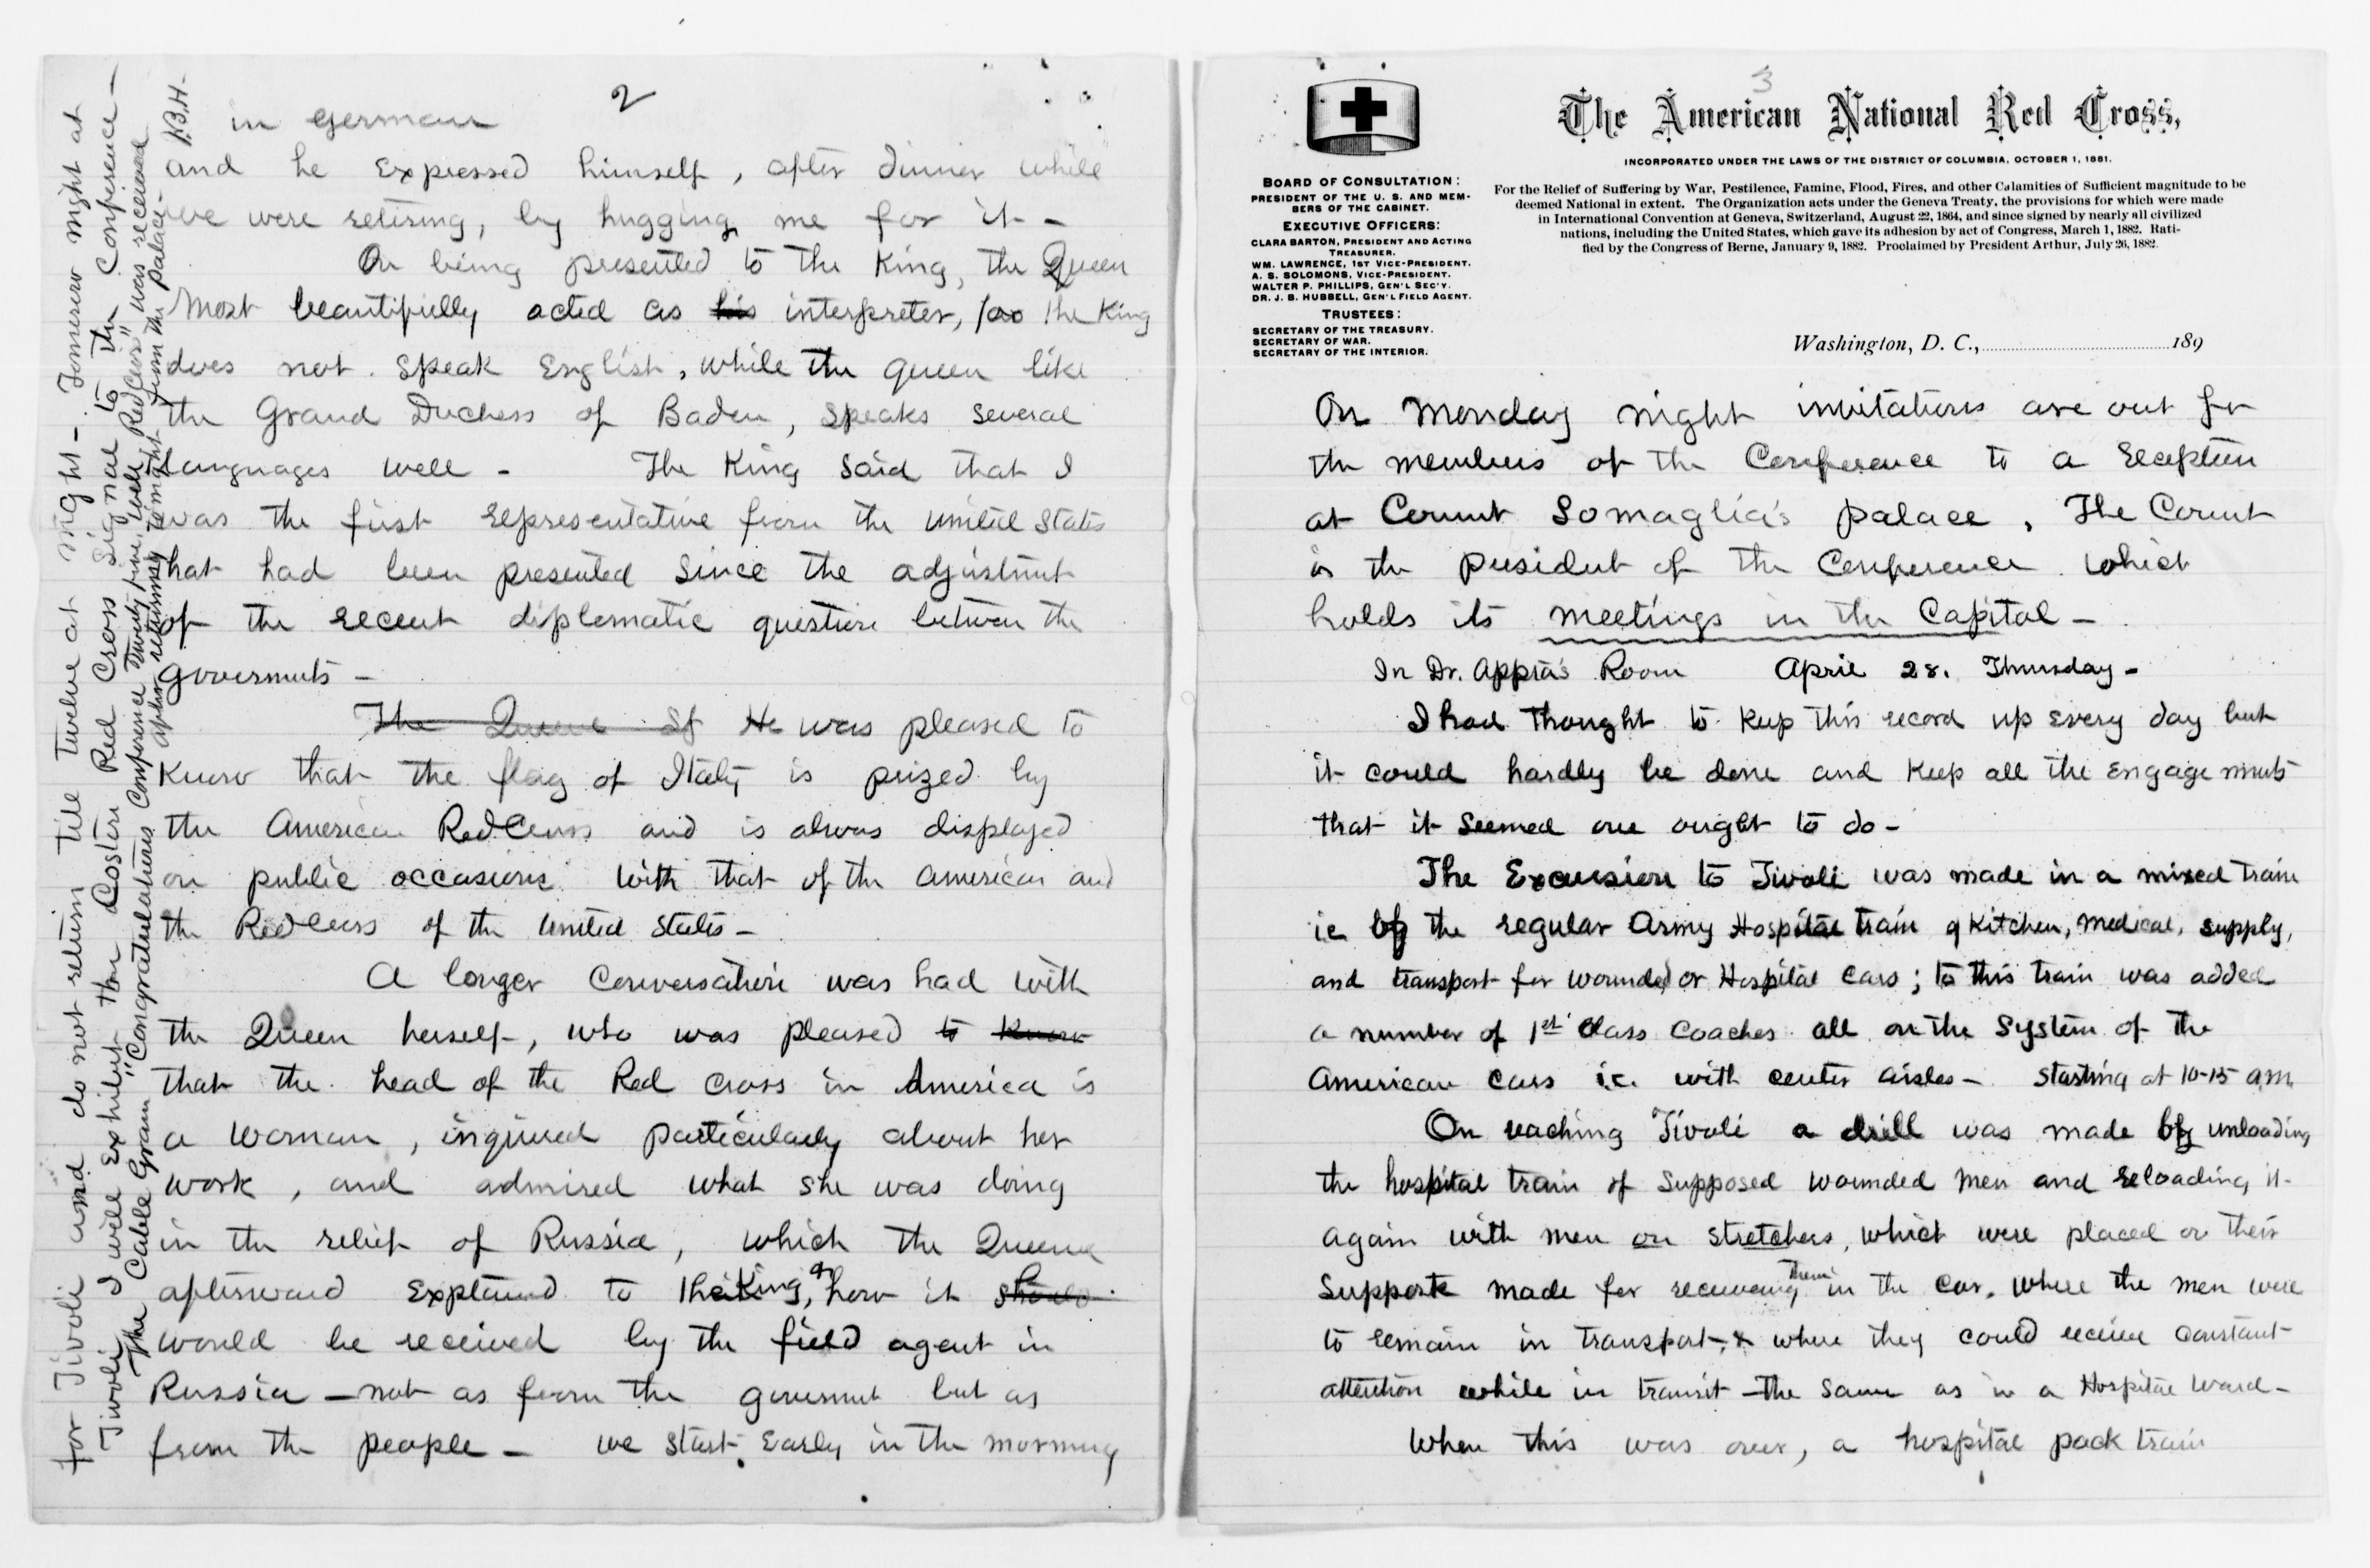 2
in German
and he expressed himself, after dinner while
we were retiring, by hugging me for it -
On being presented to the King, the Queen
most beautifully acted as his interpreter, for the King
does not speak English, while the queen like
the Grand Duchess of Baden, speaks several
languages well - The King said that I
was the first representative from the United States
that had been presented since the adjustment
of the recent diplomatic question between the
goverments -
The Queen He was pleased to
know that the flag of Italy is prized by
the American Red Cross and is always displayed
on public occasions with that of the American and
the Red Cross of the United States -
A longer conversation was had with
the Queen herself, who was pleased to know
that the head of the Red Cross in America is
a woman, inquired particularly about her
work, and admired what she was doing
in the relief of Russia, which the Queen
afterward explained to the King, & how it should
would be received by the field agent in
Russia - not as from the goverment but as
from the people - we start early in the morning
for Tivoli and do not return till twelve at night - Tomorrow night at
Tivoli I will exhibit the Coston Red Cross Signal to the Conference -
The Cable Gram "Congratulations Conference Twenty five, well, Red Cross" was received
after returning tonight from the palace -
J.B.H.
3
The American National Red Cross,
INCORPORATED UNDER THE LAWS OF THE DISTRICT OF COLUMBIA, OCTOBER 1, 1881.
For the Relief of Suffering by War, Pestilence, Famine, Flood, Fires, and other Calamities of Sufficient magnitude to be
deemed National in extent. The Organization acts under the Geneva Treaty, the provisions for which were made
in International Convention at Geneva, Switzerland, August 22, 1864, and since signed by nearly all civilized
nations, including the United States, which gave its adhesion by act of Congress, March 1, 1882. Rati-
fied by the Congress of Berne, January 9, 1882. Proclaimed by President Arthur, July 26, 1882.
BOARD OF CONSULTATION:
PRESIDENT OF THE U. S. AND MEM-
BERS OF THE CABINET.
EXECUTIVE OFFICERS:
CLARA BARTON, PRESIDENT AND ACTING
TREASURER.
WM. LAWRENCE, 1ST VICE-PRESIDENT.
A. S. SOLOMONS, VICE-PRESIDENT.
WALTER P. PHILLIPS, GEN'L SEC'Y.
DR. J. B. HUBBELL, GEN'L FIELD AGENT.
TRUSTEES:
SECRETARY OF THE TREASURY.
SECRETARY OF WAR.
SECRETARY OF THE INTERIOR.
Washington, D. C., 189
On Monday night invitations are out for
the members of the Conference to a reception
at Count Somaglia's palace, The Count
is the president of the Conference which
holds its meetings in the Capital -
In Dr. Appia's Room April 28. Thursday -
I had thought to keep this record up every day but
it could hardly be done and keep all the engagements
that it seemed one ought to do -
The Excursion to Tivoli was made in a mixed train
ie by the regular Army Hospital train of Kitchen, medical, supply,
and transport for wounded or Hospital cars; to this train was added
a number of 1st Class Coaches all on the System of the
American cars i.e. with center aisles - starting at 10-15 a.m.
On reaching Tivoli a drill was made by unloading
the hospital train of supposed wounded men and reloading it
again with men on stretchers, which were placed on their
supports made for receiving them in the car, where the men were
to remain in transport, & where they could receive constant
attention while in transit - the same as in a Hospital Ward -
When this was over, a hospital pack train